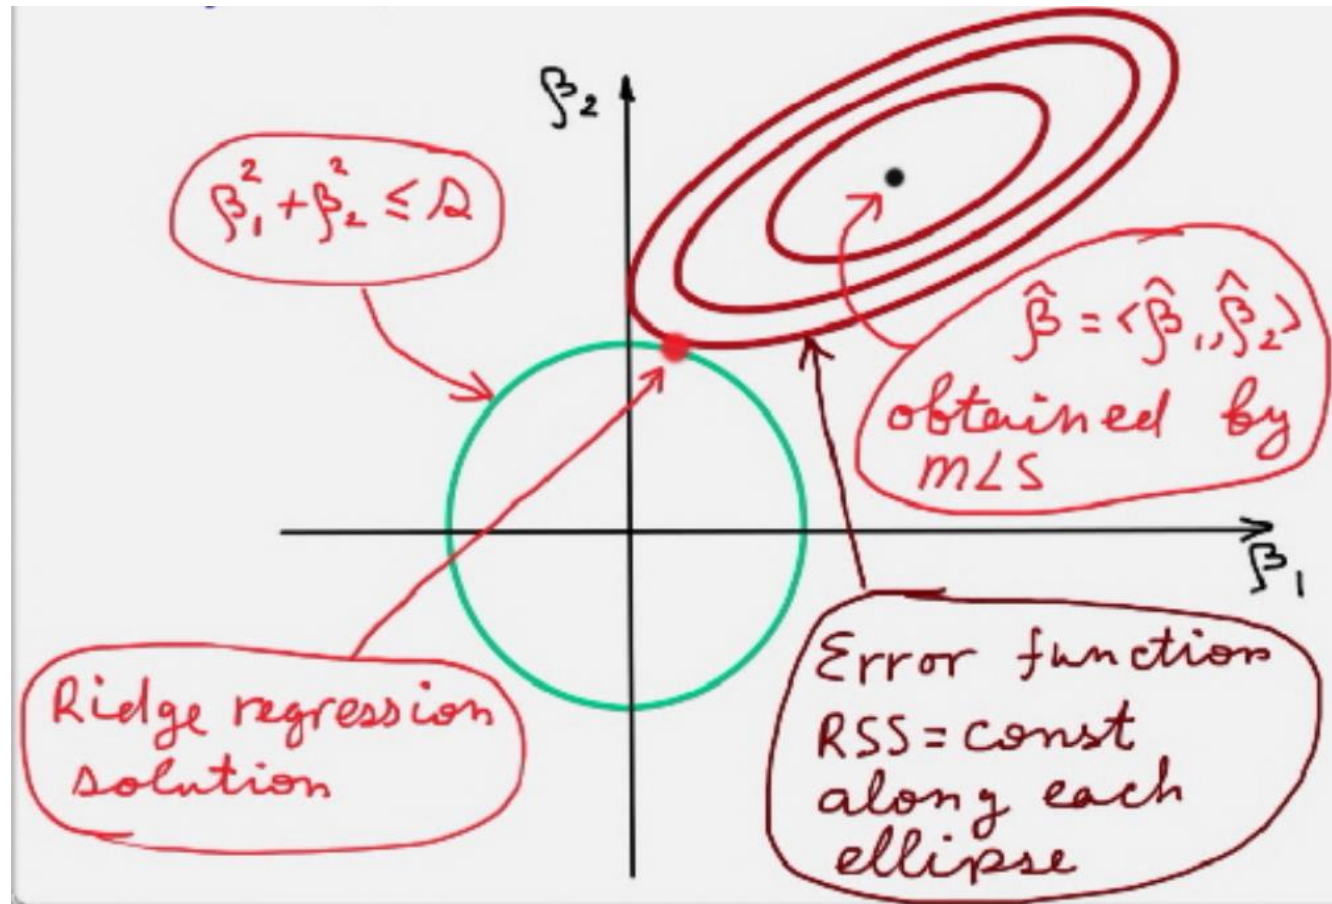 β₂
β₁² + β₂² ≤ s
β̂ = <β̂₁, β̂₂>
obtained by
MLS
β₁
Ridge regression
solution
Error function
RSS = const
along each
ellipse